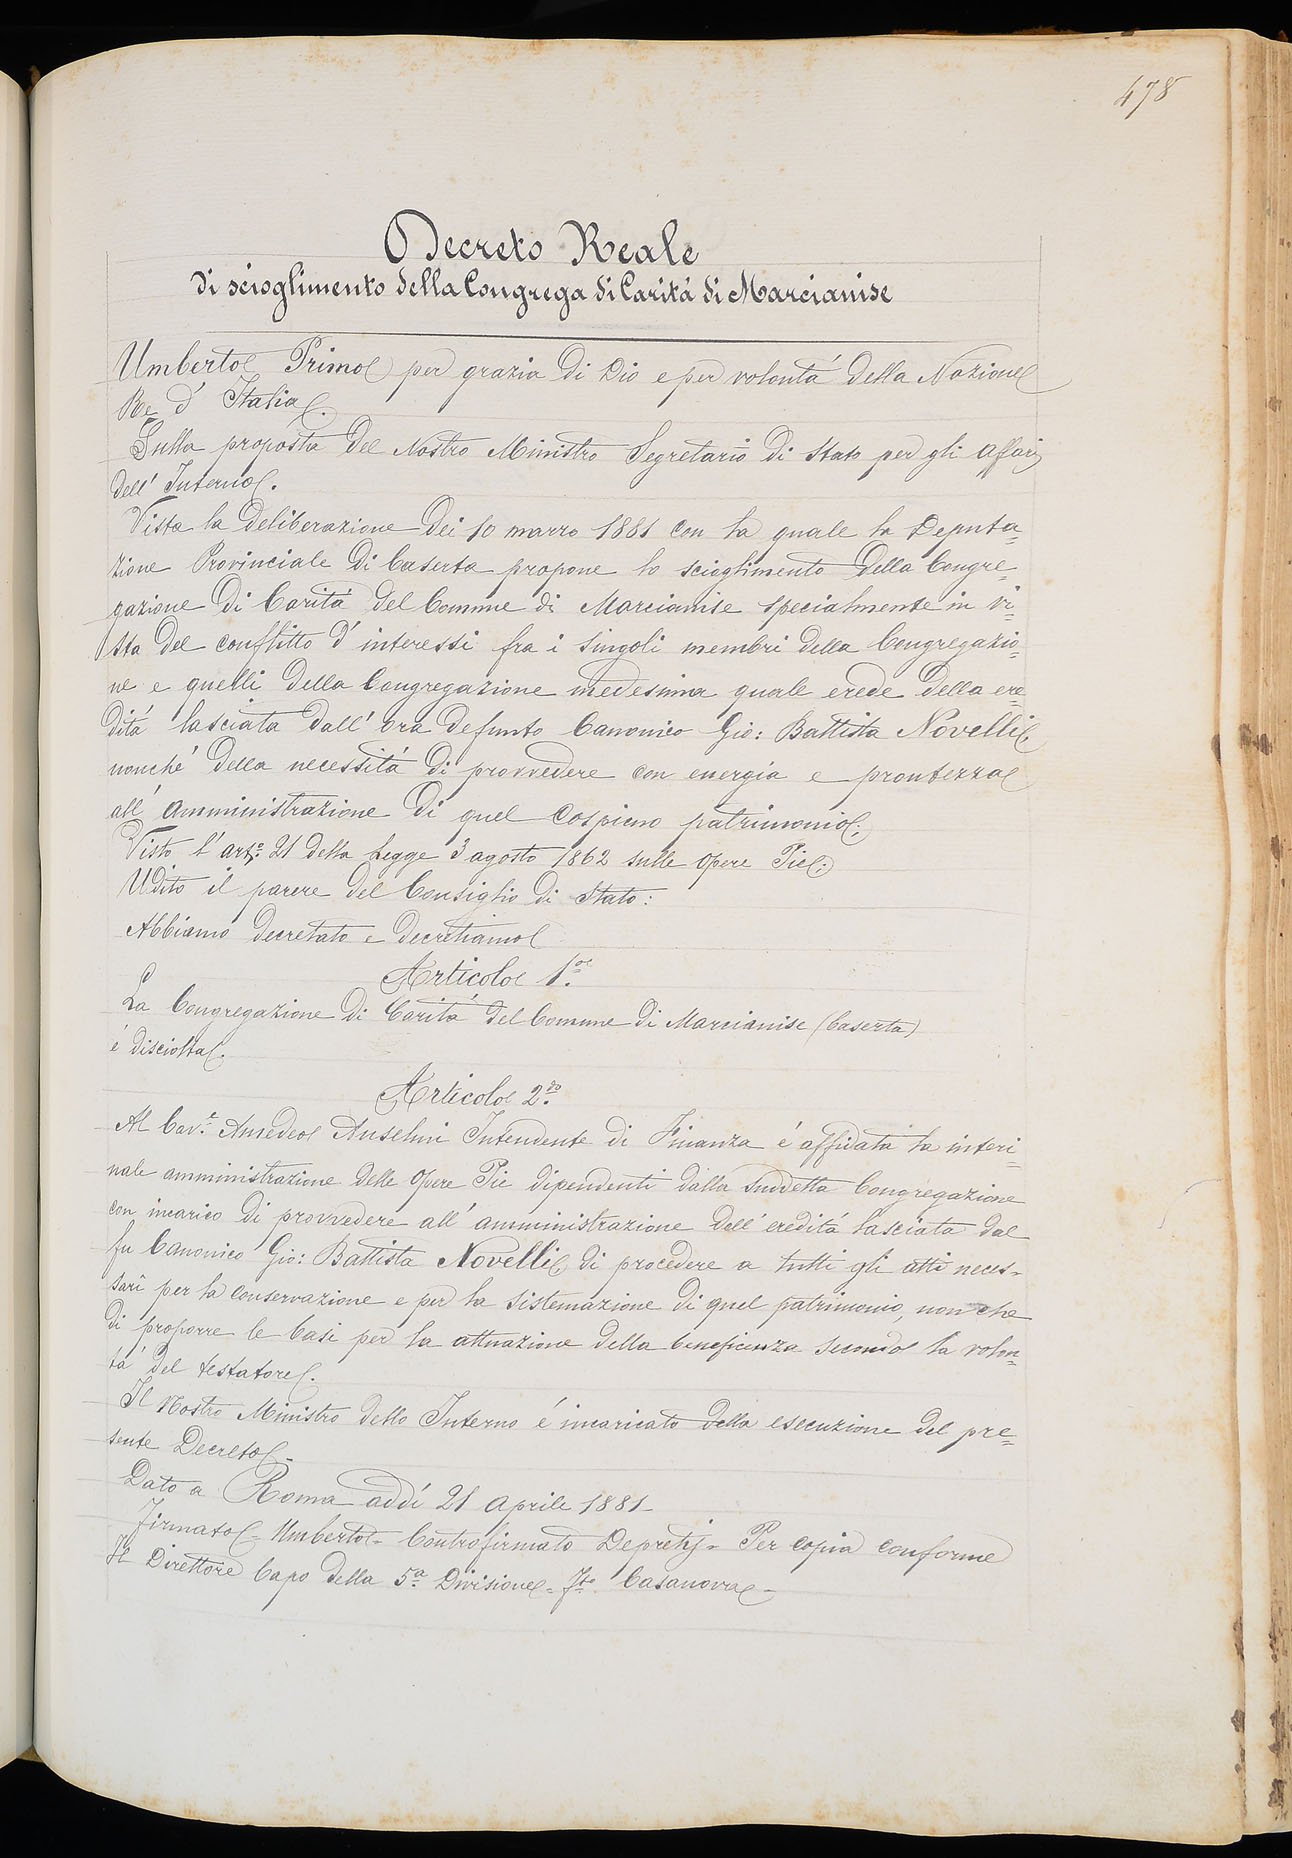 478
Decreto Reale
di scioglimento della Congrega di Carità di Marcianise
Umberto Primo per grazia di Dio e per volontà della Nazione
Re d' Italia.
Sulla proposta del Nostro Ministro Segretario di Stato per gli affari
dell' Interno.
Vista la deliberazione dei 10 marzo 1881 con la quale la Deputa=
zione Provinciale di Caserta propone lo scioglimento della Congre=
gazione di Carità del Comune di Marcianise specialmente in vi=
sta del conflitto d' interessi fra i singoli membri della Congregazio=
ne e quelli della Congregazione medesima quale erede della ere
dità lasciata dall' ora defunto Canonico Gio: Battista Novelli
nonché della necessità di provvedere con energia e prontezza
all' amministrazione di quel cospicuo patrimonio;
Visto l' arto: 21 della Legge 3 agosto 1862 sulle Opere Pie;
Udito il parere del Consiglio di Stato:
Abbiamo decretato e decretiamo
Articolo 1.o
La Congregazione di Carità del Comune di Marcianise (Caserta)
é disciolta.
Articolo 2.do
Al Cav.e Amedeo Anselmi Intendente di Finanza é affidata la interi=
nale amministrazione delle Opere Pie dipendenti dalla suddetta Congregazione
con incarico di provvedere all' amministrazione dell' eredità lasciata dal
fu Canonico Gio: Battista Novelli di procedere a tutti gli atti neces-
sarî per la conservazione e per la sistemazione di quel patrimonio, non che
di proporre le basi per la attuazione della beneficenza secondo la volon=
tà del testatore.
Il Nostro Ministro dello Interno é incaricato della esecuzione del pre=
sente Decreto.
Dato a Roma addí 21 aprile 1881-
Firmato - Umberto - Controfirmato Depretis - Per copia conforme
Il Direttore Capo della 5.a Divisione - F.to Casanova -